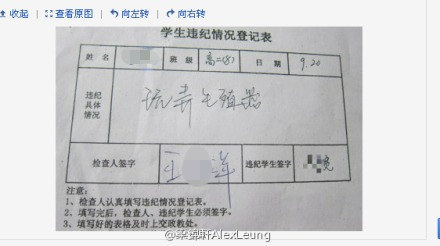 收起 | 查看原图 | 向左转 | 向右转
学生违纪情况登记表
姓名 班级 高二(8) 日期 9.20
违纪具体情况 玩弄生殖器
检查人签字 王 洋 违纪学生签字
注意:
1、检查人认真填写违纪情况登记表。
2、填写完后，检查人、违纪学生必须签字。
3、填写好的表格及时上交政教处。
AlexLeung